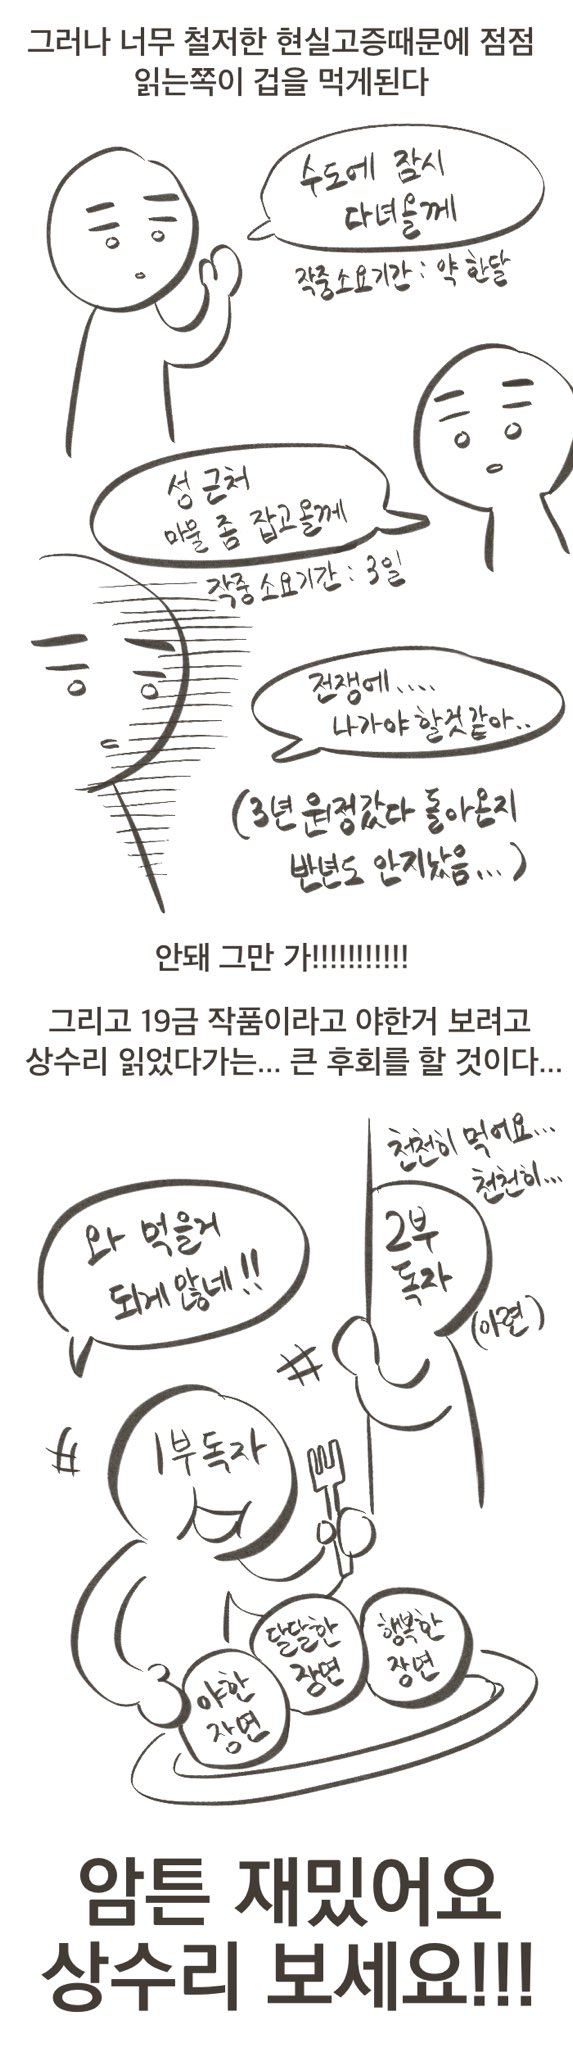 그러나 너무 철저한 현실고증때문에 점점
읽는쪽이 겁을 먹게된다
수도에 잠시
다녀올께
작중소요기간 : 약 한달
성 근처
마물 좀 잡고올께
작중 소요기간 : 3일
전쟁에....
나가야 할것 같아..
(3년 원정갔다 돌아온지
반년도 안지났음...)
안돼 그만 가!!!!!!!!!!!
그리고 19금 작품이라고 야한거 보려고
상수리 읽었다가는... 큰 후회를 할 것이다...
천천히 먹어요...
천천히...
2부
독자
(아련)
와 먹을거
되게 많네!!
1부독자
달달한
장면
행복한
장면
야한
장면
암튼 재밌어요
상수리 보세요!!!